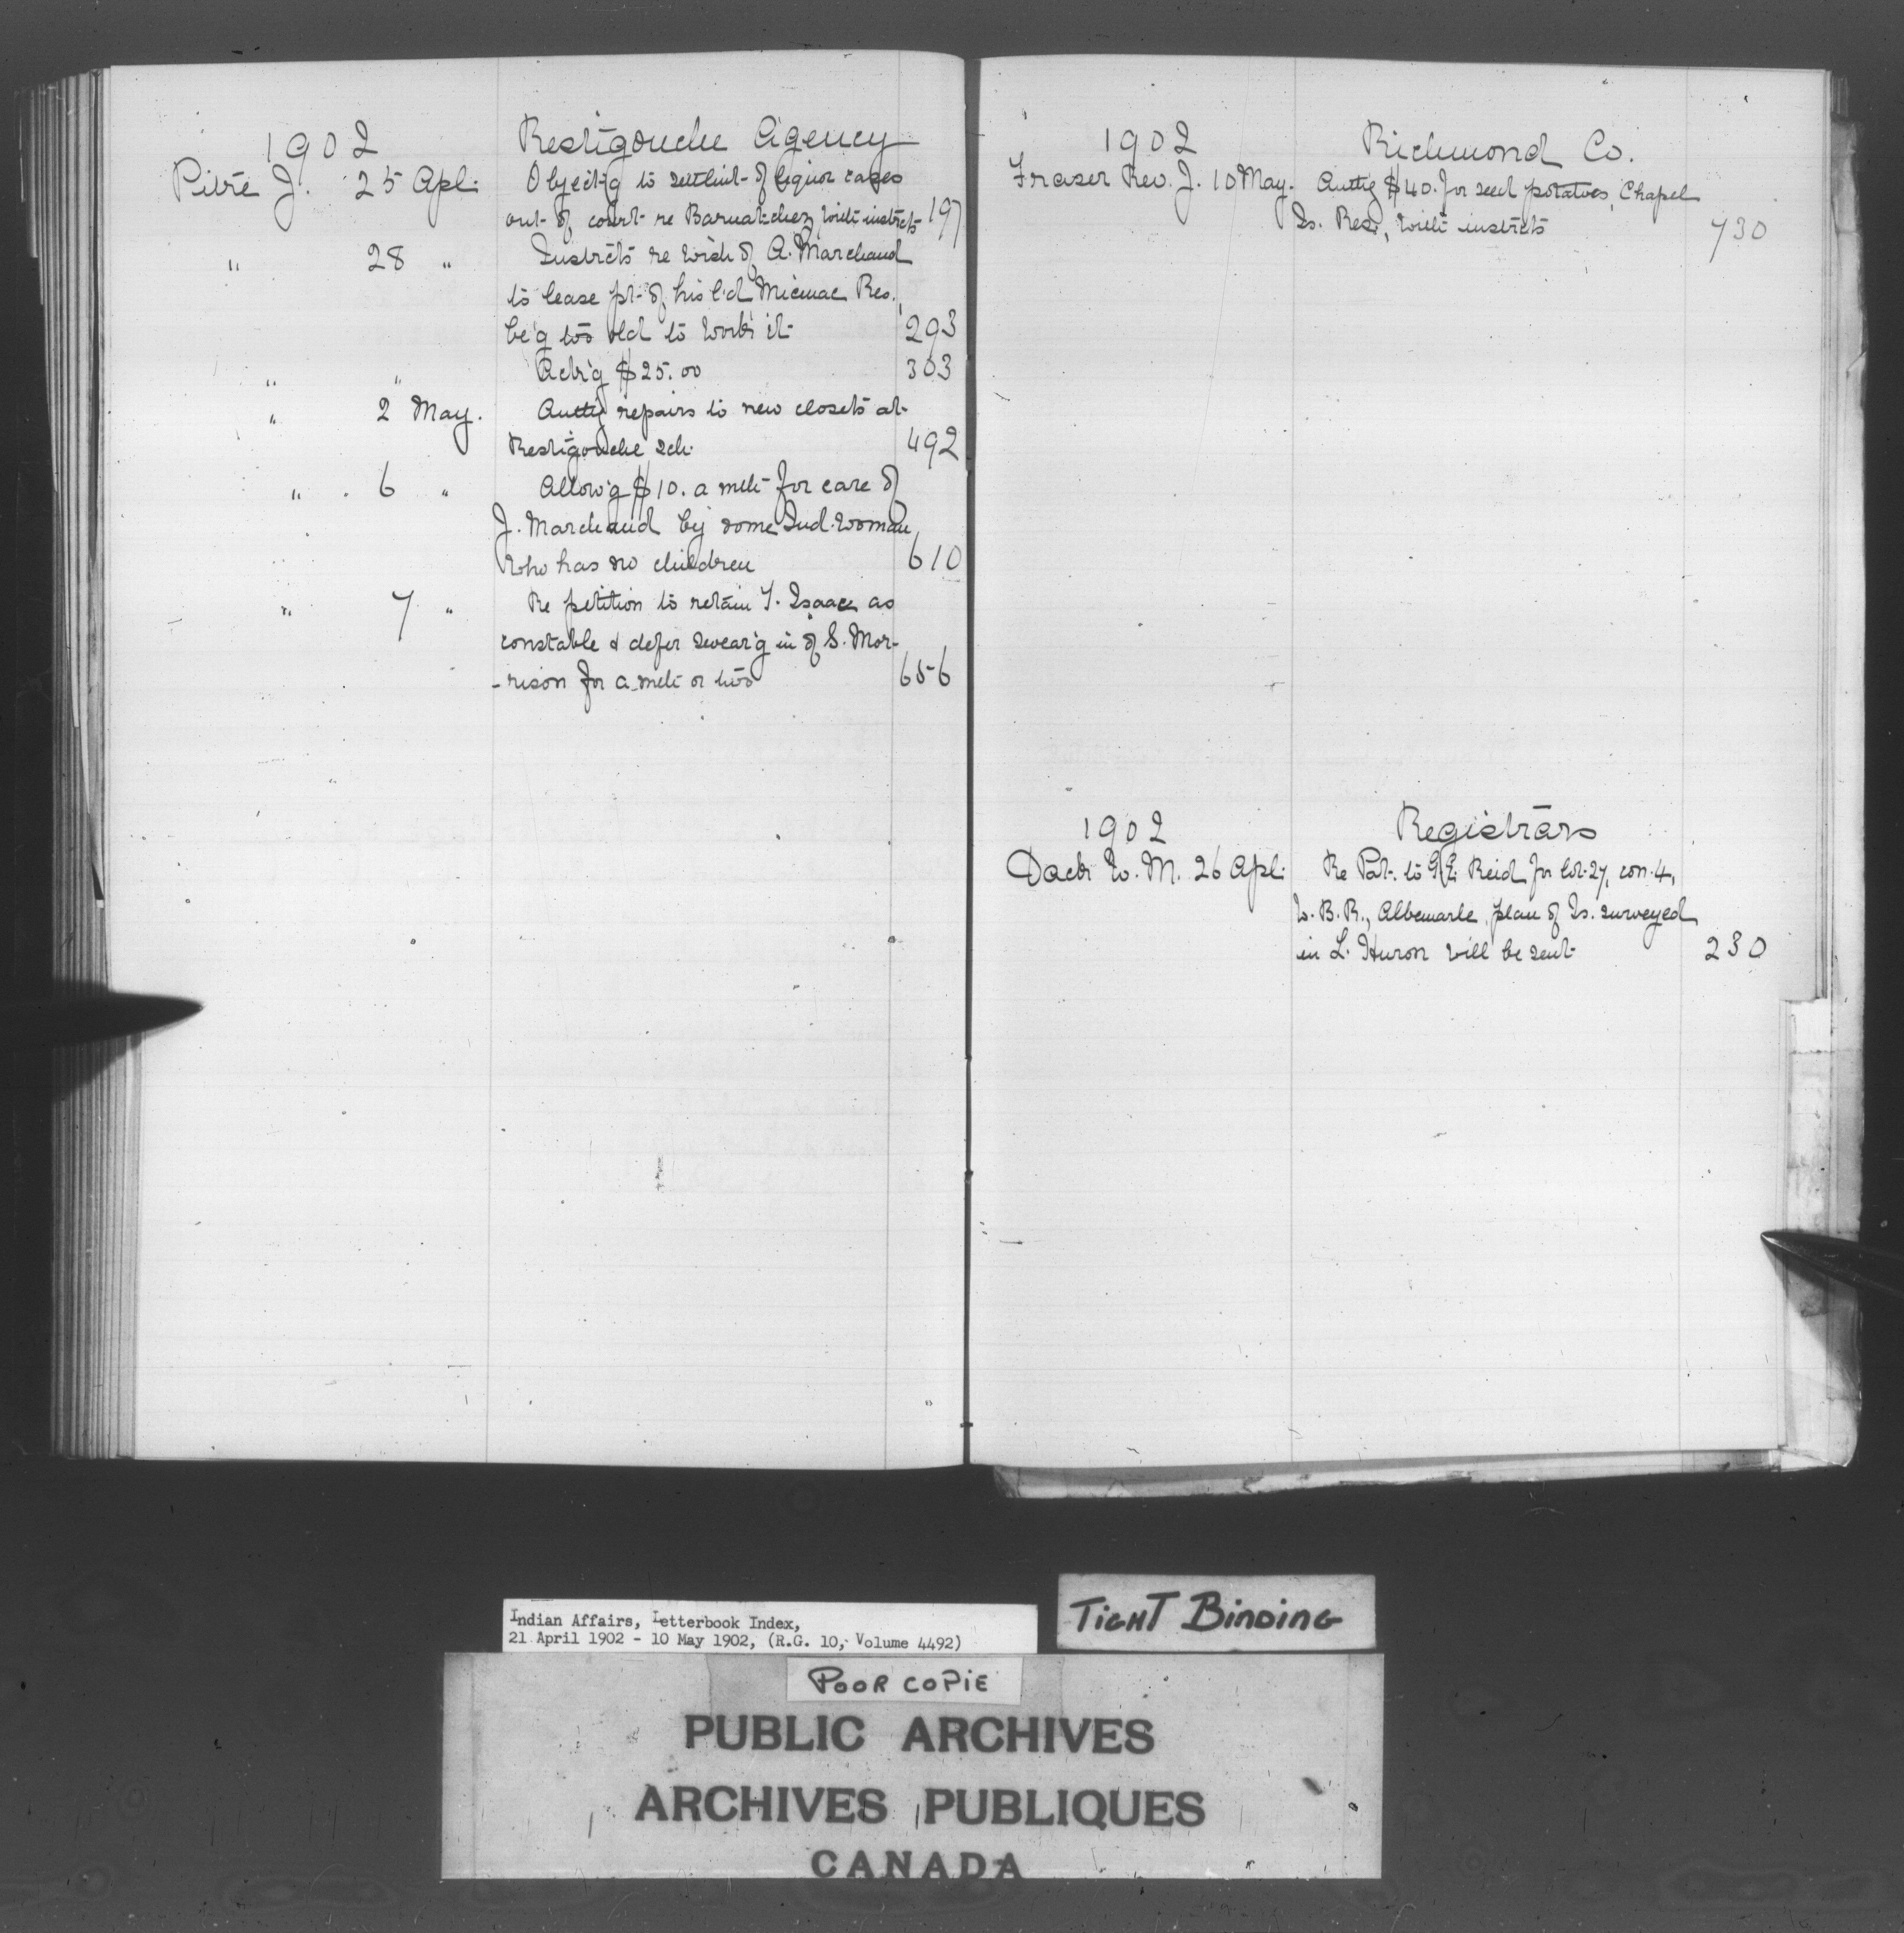 1902 Restigouche Agency
Pitre J. 25 Apl. Object'g to settlmt of liquor cases
out of court re Barnatchez, with instrcts 197
" 28 " Instrcts re wish of A. Marchand
to lease pt. of his l'd Micmac Res.,
be'g too old to work it 293
" " Ack'g $25.00 303
" 2 May. Authg repairs to new closets at
Restigouche Sch. 492
" 6 " Allow'g $10. a mth for care of
J. Marchand by some Ind. woman
who has no children 610
" 7 " Re petition to retain T. Isaac as
constable & defer swear'g in of S. Mor-
-rison for a mth or two 656
1902 Richmond Co.
Fraser Rev. J. 10 May. Authg $40. for seed potatoes, Chapel
Is. Res., with instrcts 730
1902 Registrars
Dack W. M. 26 Apl. Re Pat. to G.E. Reid for lot 27, con. 4,
W. B. R., Albemarle, plan of Is. surveyed
in L. Huron will be sent 230
Indian Affairs, Letterbook Index,
21 April 1902 - 10 May 1902, (R.G. 10, Volume 4492)
TIGHT BINDING
POOR COPIE
PUBLIC ARCHIVES
ARCHIVES PUBLIQUES
CANADA